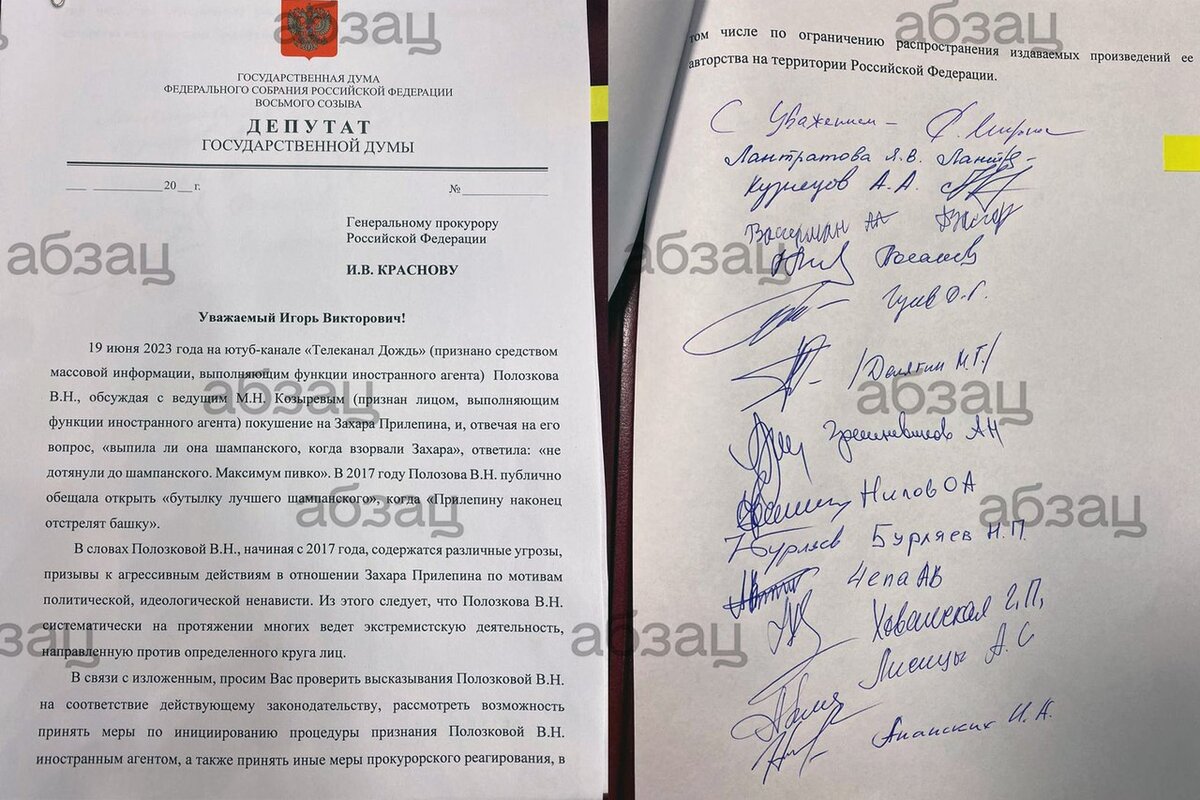 ГОСУДАРСТВЕННАЯ ДУМА
ФЕДЕРАЛЬНОГО СОБРАНИЯ РОССИЙСКОЙ ФЕДЕРАЦИИ
ВОСЬМОГО СОЗЫВА
ДЕПУТАТ
ГОСУДАРСТВЕННОЙ ДУМЫ
___ __________20___г.
№_____________
Генеральному прокурору
Российской Федерации
И.В. КРАСНОВУ
Уважаемый Игорь Викторович!
19 июня 2023 года на ютуб-канале «Телеканал Дождь» (признано средством
массовой информации, выполняющим функции иностранного агента) Полозкова
В.Н., обсуждая с ведущим М.Н. Козыревым (признан лицом, выполняющим
функции иностранного агента) покушение на Захара Прилепина, и, отвечая на его
вопрос, «выпила ли она шампанского, когда взорвали Захара», ответила: «не
дотянули до шампанского. Максимум пивко». В 2017 году Полозова В.Н. публично
обещала открыть «бутылку лучшего шампанского», когда «Прилепину наконец
отстрелят башку».
В словах Полозковой В.Н., начиная с 2017 года, содержатся различные угрозы,
призывы к агрессивным действиям в отношении Захара Прилепина по мотивам
политической, идеологической ненависти. Из этого следует, что Полозкова В.Н.
систематически на протяжении многих ведет экстремистскую деятельность,
направленную против определенного круга лиц.
В связи с изложенным, просим Вас проверить высказывания Полозковой В.Н.
на соответствие действующему законодательству, рассмотреть возможность
принять меры по инициированию процедуры признания Полозковой В.Н.
иностранным агентом, а также принять иные меры прокурорского реагирования, в
том числе по ограничению распространения издаваемых произведений ее
авторства на территории Российской Федерации.
С Уважением –
Лантратова Я.В.
Кузнецов А.А.
Вассерман АА
Гусев Д.Г.
/Делягин М.Г./
Грешневиков АН
Нилов ОА
Бурляев Бурляев Н.П.
Чепа АВ
Хованская Г.П,
Лисицын А.С
Ананских И.А.
абзац
абзац
абзац
абзац
абзац
абзац
абзац
абзац
абзац